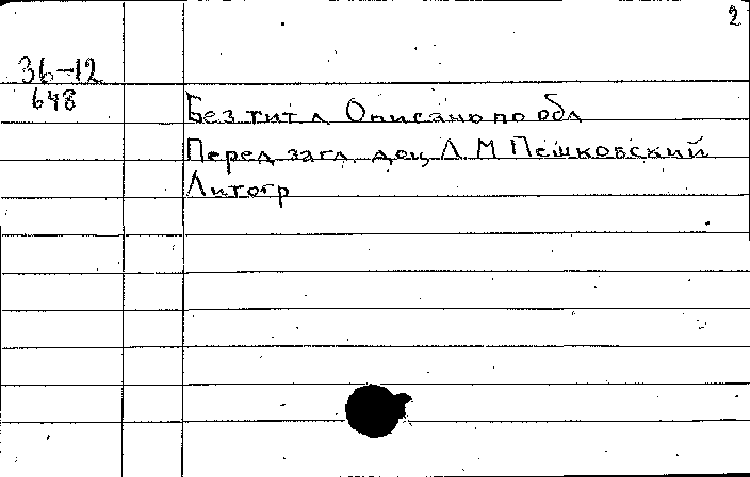 2
36-12
648
Без тит л Описано по обл
Перед загл доц Л М Пешковский
Литогр